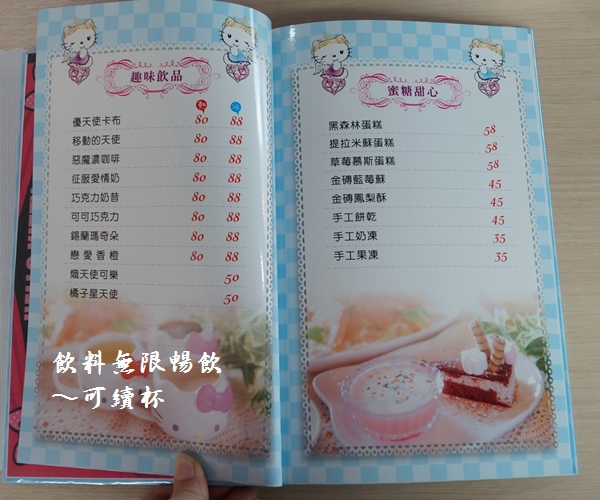 趣味飲品
熱 冰
優天使卡布 80 88
移動的天使 80 88
惡魔濃咖啡 80 88
征服愛情奶 80 88
巧克力奶昔 80 88
可可巧克力 80 88
錫蘭瑪奇朵 80 88
戀愛香橙 80 88
熾天使可樂 50
橘子星天使 50
飲料無限暢飲
～可續杯
蜜糖甜心
黑森林蛋糕 58
提拉米蘇蛋糕 58
草莓慕斯蛋糕 58
金磚藍莓酥 45
金磚鳳梨酥 45
手工餅乾 45
手工奶凍 35
手工果凍 35